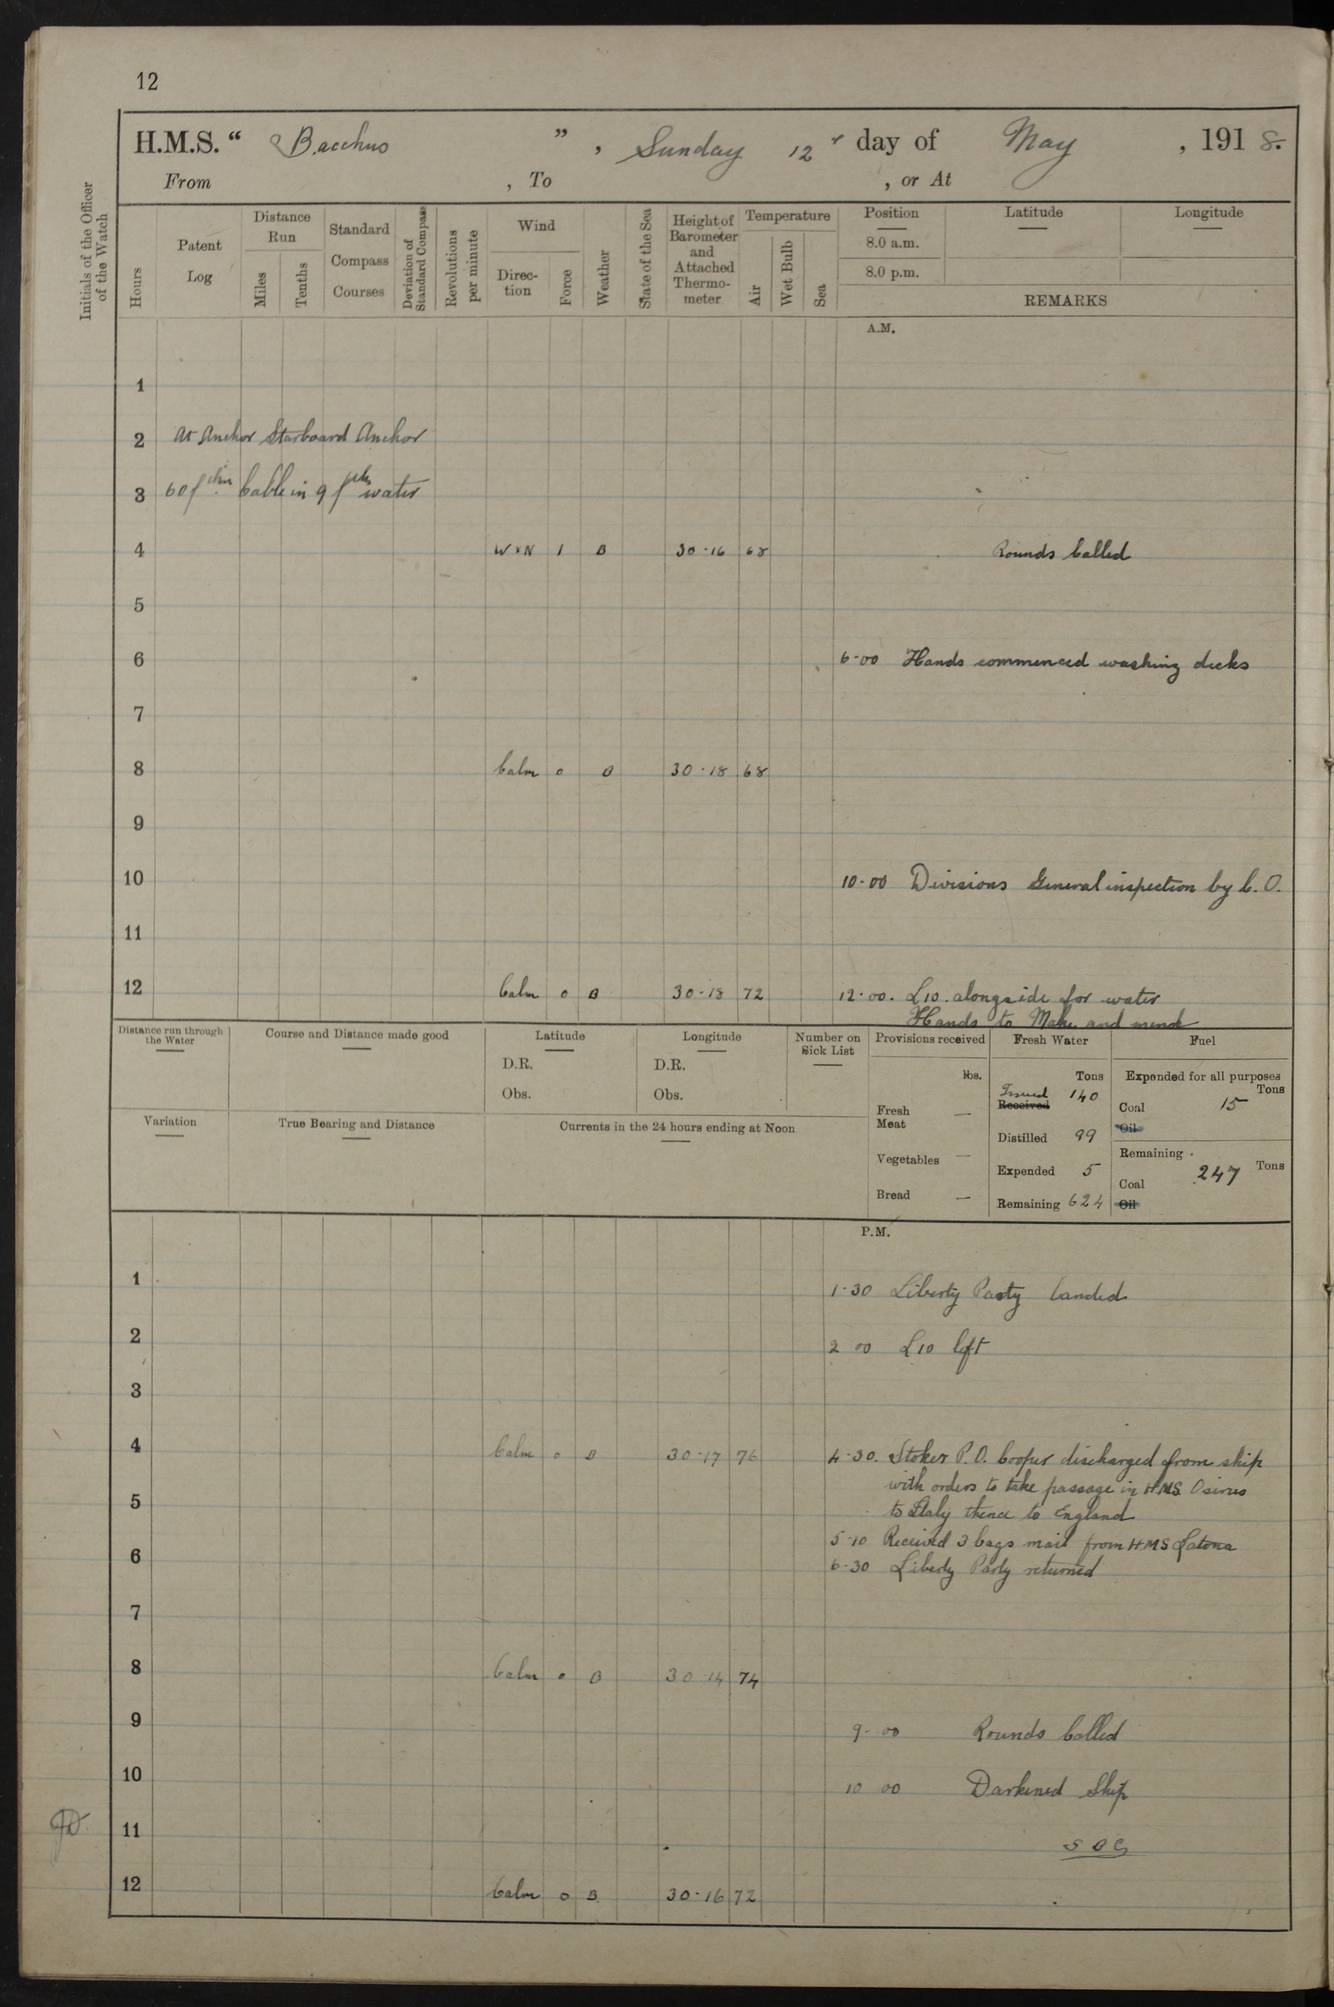 12
H.M.S. “ Bacchus ” , Sunday 12 day of May , 191 8.
From , To , or At
Initials of the Officer of the Watch
Hours
Patent Log
Distance Run
Miles
Tenths
Standard Compass Courses
Deviation of Standard Compass
Revolutions per minute
Wind
Direc-tion
Force
Weather
State of the Sea
Height of Barometer and Attached Thermo-meter
Temperature
Air
Wet Bulb
Sea
Position Latitude Longitude
8.0 a.m.
8.0 p.m.
REMARKS
A.M.
1
2 At Anchor Starboard Anchor
3 60 fthm Cable in 9 fthm water
4 W x N 1 B 30·16 68 Rounds Called
5
6 6-00 Hands commenced washing decks
7
8 Calm 0 B 30·18 68
9
10 10-00 Divisions General inspection by C.O.
11
12 Calm 0 B 30-18 72 12-00. L10. alongside for water
Hands to Make and mend
Distance run through the Water
Course and Distance made good
Latitude
D.R.
Obs.
Longitude
D.R.
Obs.
Number on Sick List
Provisions received
lbs.
Fresh Meat —
Vegetables —
Bread —
Fresh Water
Tons
Issued 140
Received
Distilled 99
Expended 5
Remaining 624
Fuel
Expended for all purposes
Tons
Coal 15
Oil
Remaining
Tons
Coal 247
Oil
Variation
True Bearing and Distance
Currents in the 24 hours ending at Noon
P.M.
1 1-30 Liberty Party landed
2 2 00 L10 left
3
4 Calm 0 B 30-17 76 4-30. Stoker P.O. Cooper discharged from ship
with orders to take passage in HMS Osirus
5 to Italy thence to England
5-10 Received 3 bags mail from HMS Latona
6 6-30 Liberty Party returned
7
8 Calm 0 B 30 14 74
9 9- 00 Rounds Called
10 10 00 Darkened Ship
11
12 Calm 0 B. 30-16 72